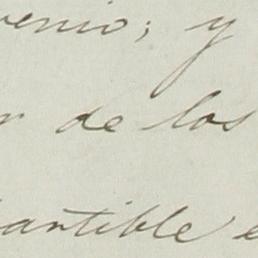 venio; y
r de los
antible e